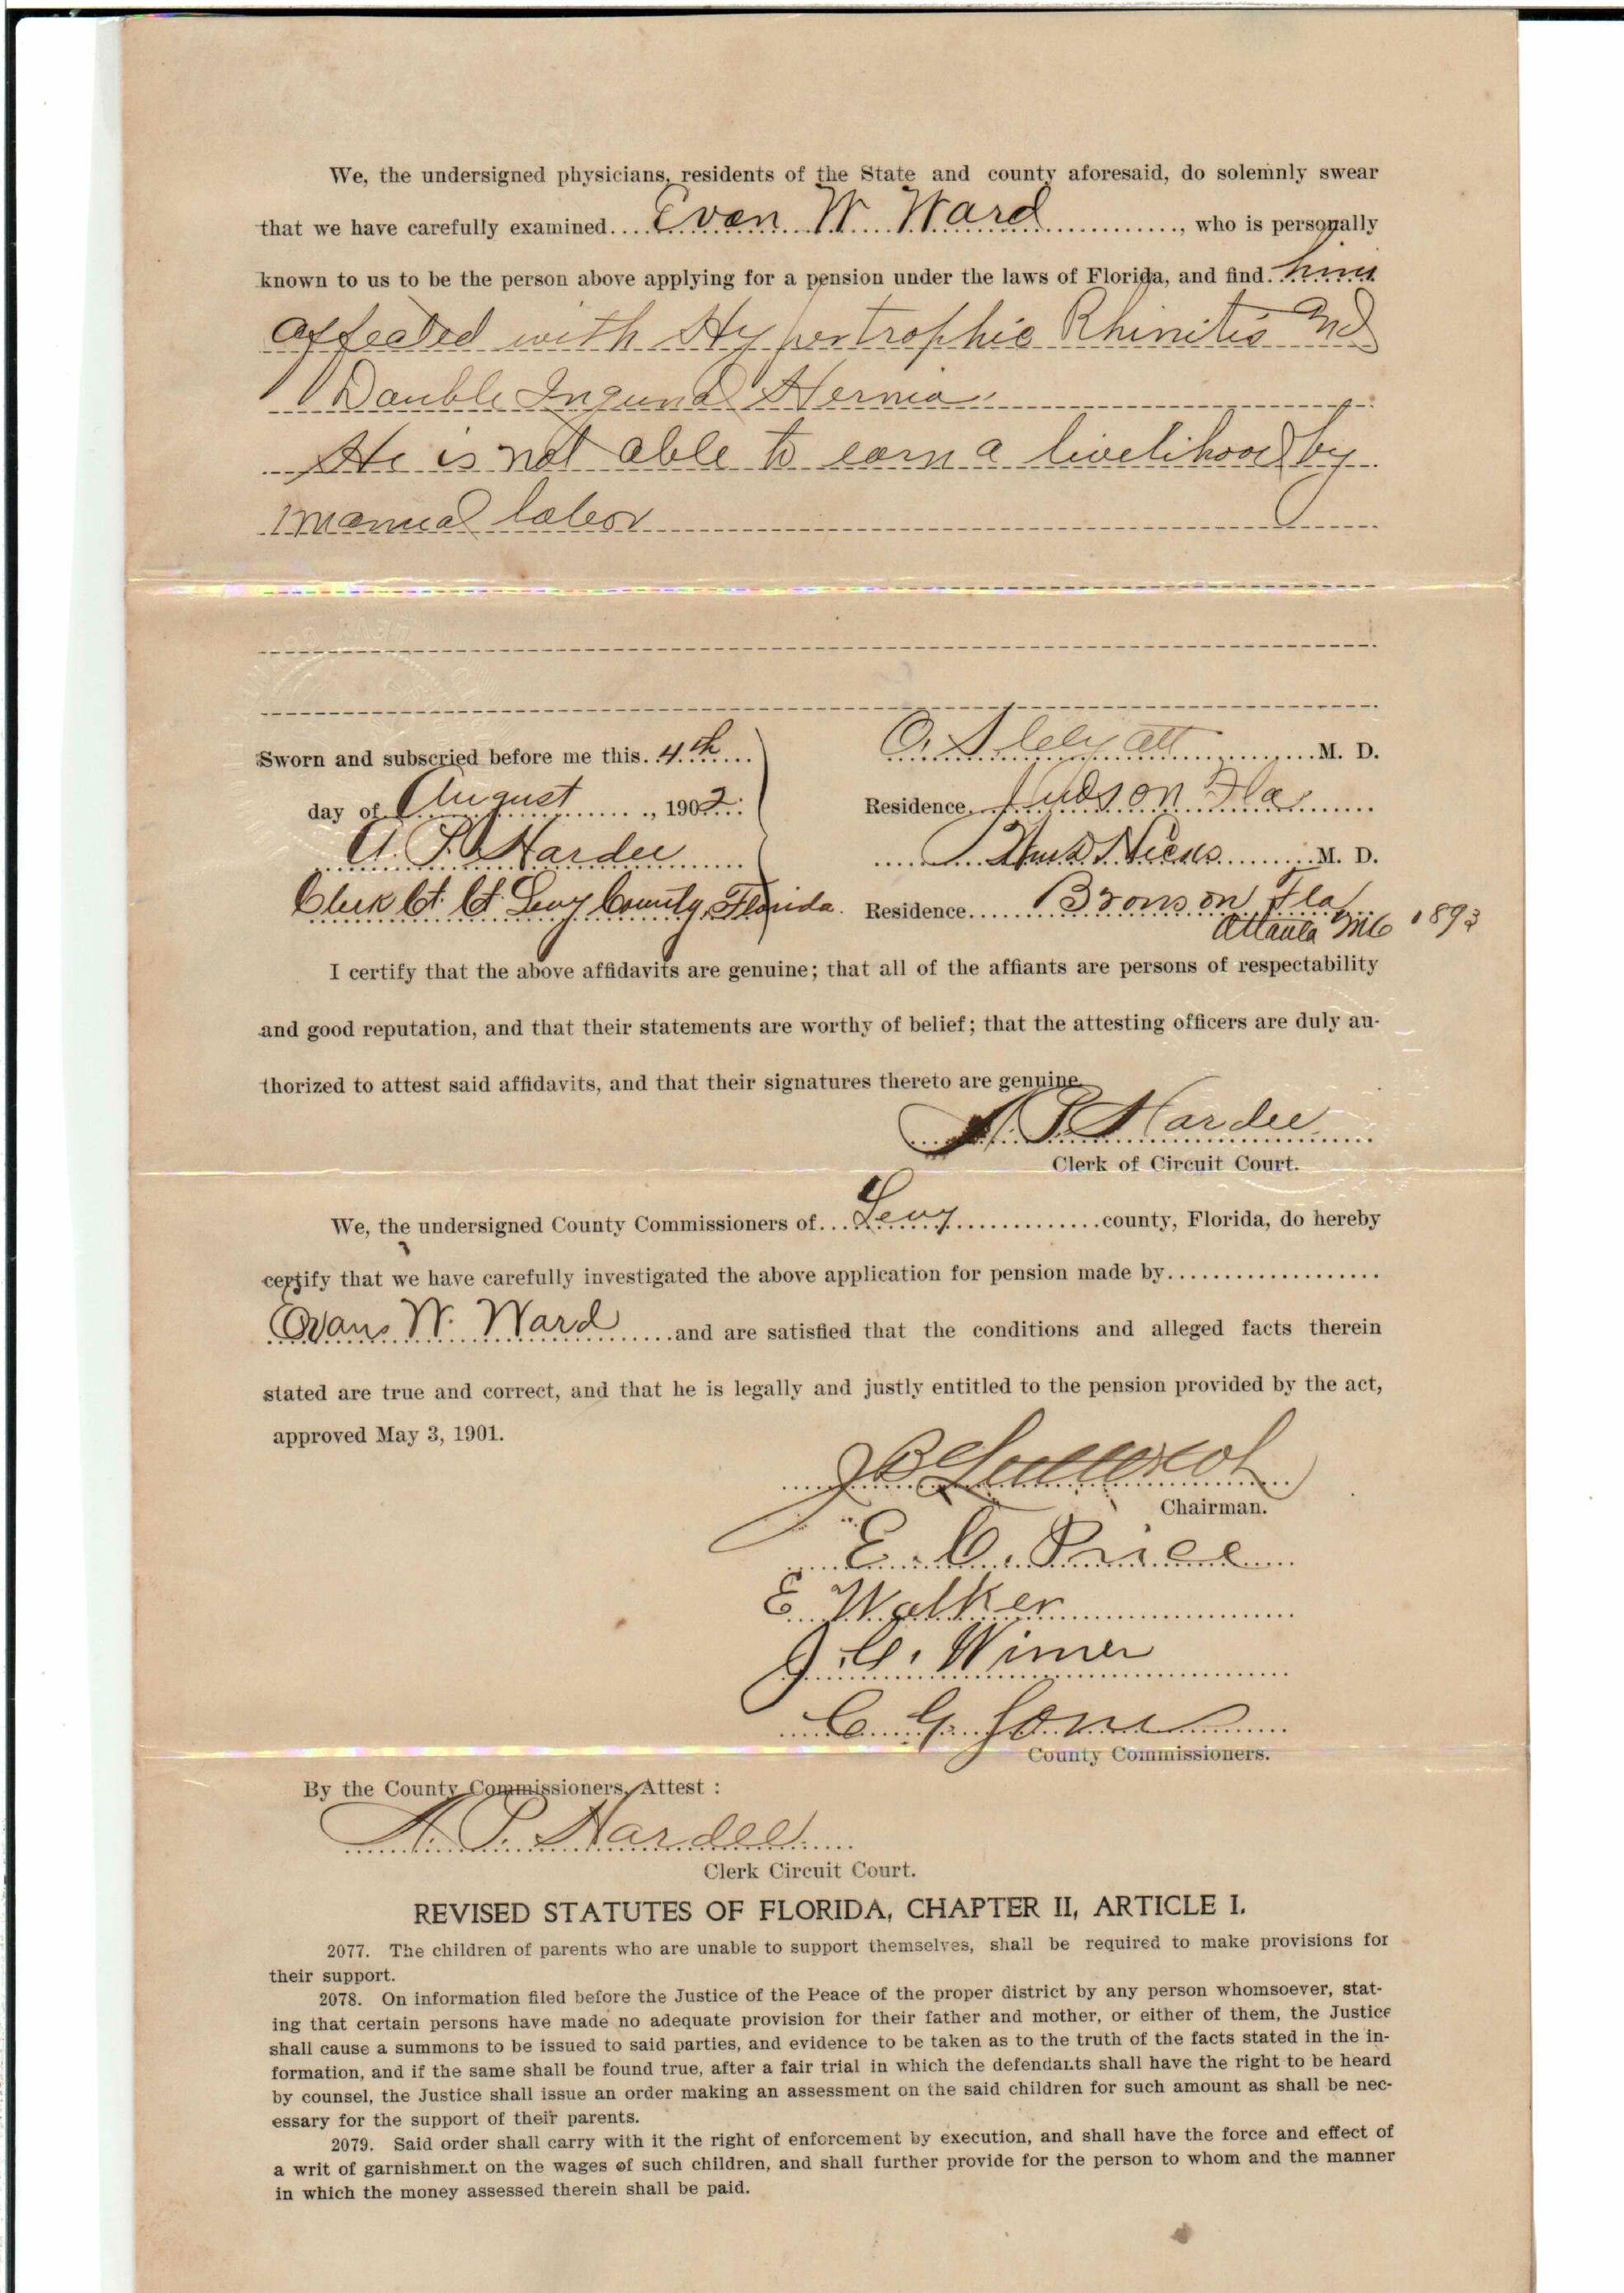 We, the undersigned physicians, residents of the State and county aforesaid, do solemnly swear
that we have carefully examined....Evan W Ward............., who is personally
known to us to be the person above applying for a pension under the laws of Florida, and find. him
affected with Hypertrophic Rhinitis and
Double Inguinal Hernia.
He is not able to earn a livelihood by
manual labor
Sworn and subscried before me this. 4th...
day of August........, 1902.:
A. P. Hardee
Clerk Ct. Ct. Levy County, Florida.
M. D.
Residence Judson Fla.
Hicks.........M. D.
Residence..... Bronson Fla
Atlanta MC 1893
I certify that the above affidavits are genuine; that all of the affiants are persons of respectability
and good reputation, and that their statements are worthy of belief; that the attesting officers are duly au-
thorized to attest said affidavits, and that their signatures thereto are genuine.
A. P. Hardee
Clerk of Circuit Court.
We, the undersigned County Commissioners of...Levy..............county, Florida, do hereby
certify that we have carefully investigated the above application for pension made by...................
Evans W. Ward......and are satisfied that the conditions and alleged facts therein
stated are true and correct, and that he is legally and justly entitled to the pension provided by the act,
approved May 3, 1901.
Chairman.
E. C. Price
E Walker
Wimer
C. G. Jones
County Commissioners.
By the County Commissioners, Attest :
A. P. Hardee
Clerk Circuit Court.
REVISED STATUTES OF FLORIDA, CHAPTER II, ARTICLE I.
2077. The children of parents who are unable to support themselves, shall be required to make provisions for
their support.
2078. On information filed before the Justice of the Peace of the proper district by any person whomsoever, stat-
ing that certain persons have made no adequate provision for their father and mother, or either of them, the Justice
shall cause a summons to be issued to said parties, and evidence to be taken as to the truth of the facts stated in the in-
formation, and if the same shall be found true, after a fair trial in which the defendants shall have the right to be heard
by counsel, the Justice shall issue an order making an assessment on the said children for such amount as shall be nec-
essary for the support of their parents.
2079. Said order shall carry with it the right of enforcement by execution, and shall have the force and effect of
a writ of garnishment on the wages of such children, and shall further provide for the person to whom and the manner
in which the money assessed therein shall be paid.